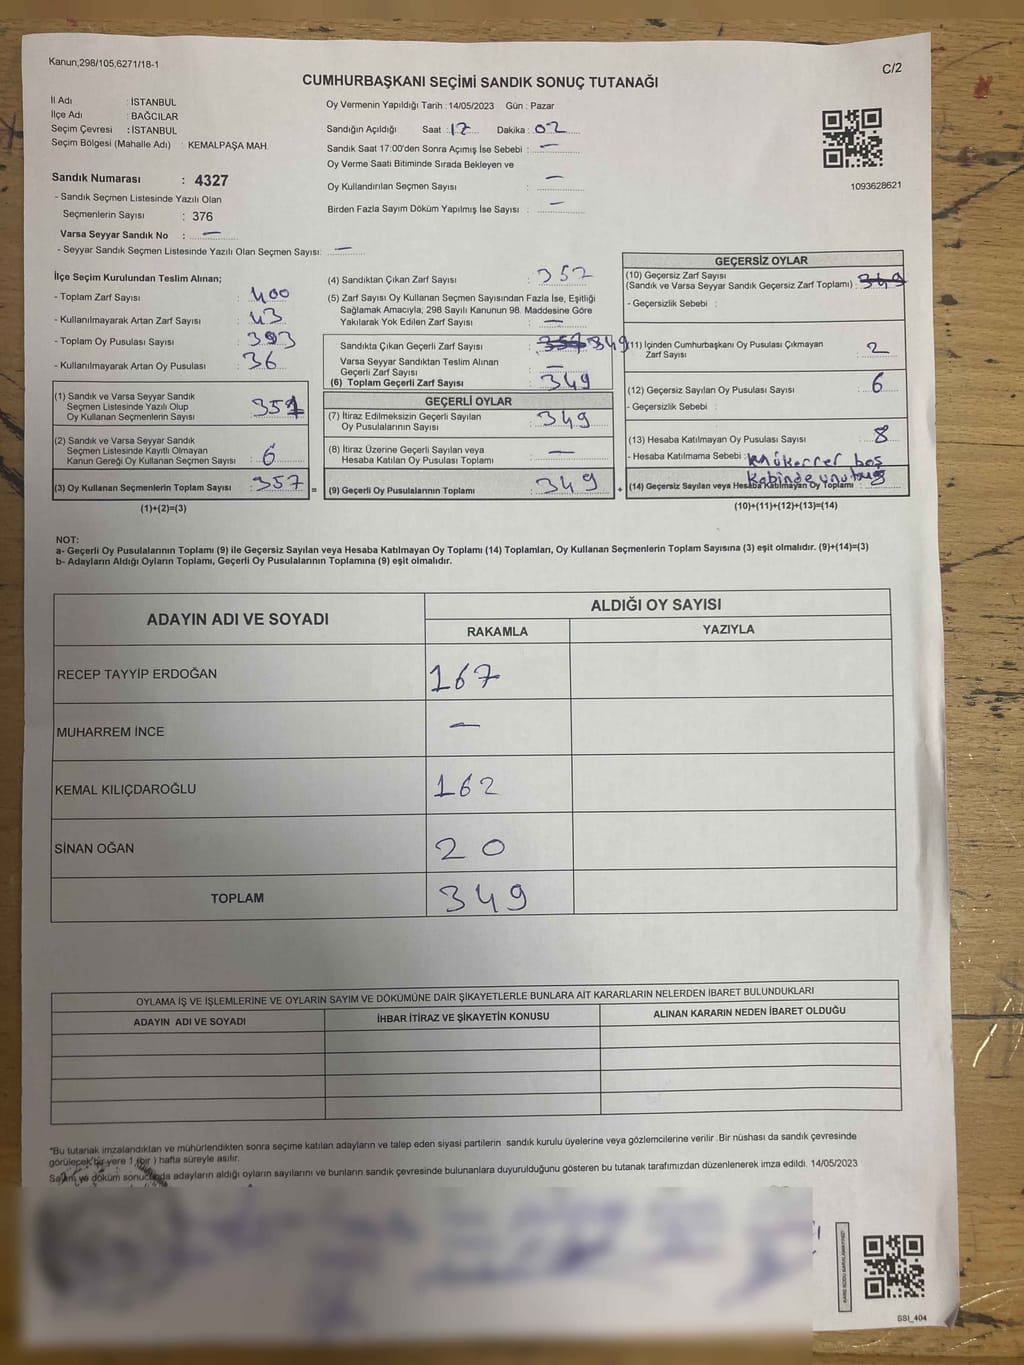 Kanun,298/105,6271/18-1
C/2
CUMHURBAŞKANI SEÇİMİ SANDIK SONUÇ TUTANAĞI
İl Adı : İSTANBUL
İlçe Adı : BAĞCILAR
Seçim Çevresi : İSTANBUL
Seçim Bölgesi (Mahalle Adı) : KEMALPAŞA MAH.
Sandık Numarası : 4327
- Sandık Seçmen Listesinde Yazılı Olan
Seçmenlerin Sayısı : 376
Varsa Seyyar Sandık No : —
- Seyyar Sandık Seçmen Listesinde Yazılı Olan Seçmen Sayısı: —
Oy Vermenin Yapıldığı Tarih : 14/05/2023 Gün : Pazar
Sandığın Açıldığı Saat : 17 Dakika : 02
Sandık Saat 17:00'den Sonra Açımış İse Sebebi : —
Oy Verme Saati Bitiminde Sırada Bekleyen ve
Oy Kullandırılan Seçmen Sayısı : —
Birden Fazla Sayım Döküm Yapılmış İse Sayısı : —
1093628621
İlçe Seçim Kurulundan Teslim Alınan;
- Toplam Zarf Sayısı : 400
- Kullanılmayarak Artan Zarf Sayısı : 43
- Toplam Oy Pusulası Sayısı : 393
- Kullanılmayarak Artan Oy Pusulası : 36
(1) Sandık ve Varsa Seyyar Sandık
Seçmen Listesinde Yazılı Olup
Oy Kullanan Seçmenlerin Sayısı : 351
(2) Sandık ve Varsa Seyyar Sandık
Seçmen Listesinde Kayıtlı Olmayan
Kanun Gereği Oy Kullanan Seçmen Sayısı : 6
(3) Oy Kullanan Seçmenlerin Toplam Sayısı : 357
(1)+(2)=(3)
(4) Sandıktan Çıkan Zarf Sayısı : 357
(5) Zarf Sayısı Oy Kullanan Seçmen Sayısından Fazla İse, Eşitliği
Sağlamak Amacıyla, 298 Sayılı Kanunun 98. Maddesine Göre
Yakılarak Yok Edilen Zarf Sayısı : —
Sandıkta Çıkan Geçerli Zarf Sayısı : 357 349
Varsa Seyyar Sandıktan Teslim Alınan
Geçerli Zarf Sayısı : —
(6) Toplam Geçerli Zarf Sayısı : 349
GEÇERLİ OYLAR
(7) İtiraz Edilmeksizin Geçerli Sayılan
Oy Pusulalarının Sayısı : 349
(8) İtiraz Üzerine Geçerli Sayılan veya
Hesaba Katılan Oy Pusulası Toplamı : —
= (9) Geçerli Oy Pusulalarının Toplamı : 349
GEÇERSİZ OYLAR
(10) Geçersiz Zarf Sayısı
(Sandık ve Varsa Seyyar Sandık Geçersiz Zarf Toplamı) : 349
- Geçersizlik Sebebi :
(11) İçinden Cumhurbaşkanı Oy Pusulası Çıkmayan
Zarf Sayısı : 2
(12) Geçersiz Sayılan Oy Pusulası Sayısı : 6
- Geçersizlik Sebebi :
(13) Hesaba Katılmayan Oy Pusulası Sayısı : 8
- Hesaba Katılmama Sebebi : Mükerrer boş
Kabinde unutmuş
+ (14) Geçersiz Sayılan veya Hesaba Katılmayan Oy Toplamı :
(10)+(11)+(12)+(13)=(14)
NOT:
a- Geçerli Oy Pusulalarının Toplamı (9) ile Geçersiz Sayılan veya Hesaba Katılmayan Oy Toplamı (14) Toplamları, Oy Kullanan Seçmenlerin Toplam Sayısına (3) eşit olmalıdır. (9)+(14)=(3)
b- Adayların Aldığı Oyların Toplamı, Geçerli Oy Pusulalarının Toplamına (9) eşit olmalıdır.
ADAYIN ADI VE SOYADI
ALDIĞI OY SAYISI
RAKAMLA YAZIYLA
RECEP TAYYİP ERDOĞAN 167
MUHARREM İNCE —
KEMAL KILIÇDAROĞLU 162
SİNAN OĞAN 20
TOPLAM 349
OYLAMA İŞ VE İŞLEMLERİNE VE OYLARIN SAYIM VE DÖKÜMÜNE DAİR ŞİKAYETLERLE BUNLARA AİT KARARLARIN NELERDEN İBARET BULUNDUKLARI
ADAYIN ADI VE SOYADI İHBAR İTİRAZ VE ŞİKAYETİN KONUSU ALINAN KARARIN NEDEN İBARET OLDUĞU
"Bu tutanak imzalandıktan ve mühürlendikten sonra seçime katılan adayların ve talep eden siyasi partilerin sandık kurulu üyelerine veya gözlemcilerine verilir .Bir nüshası da sandık çevresinde
görülecek bir yere 1 (bir ) hafta süreyle asılır.
Sayım ve döküm sonucunda adayların aldığı oyların sayılarını ve bunların sandık çevresinde bulunanlara duyurulduğunu gösteren bu tutanak tarafımızdan düzenlenerek imza edildi. 14/05/2023
SSI_404